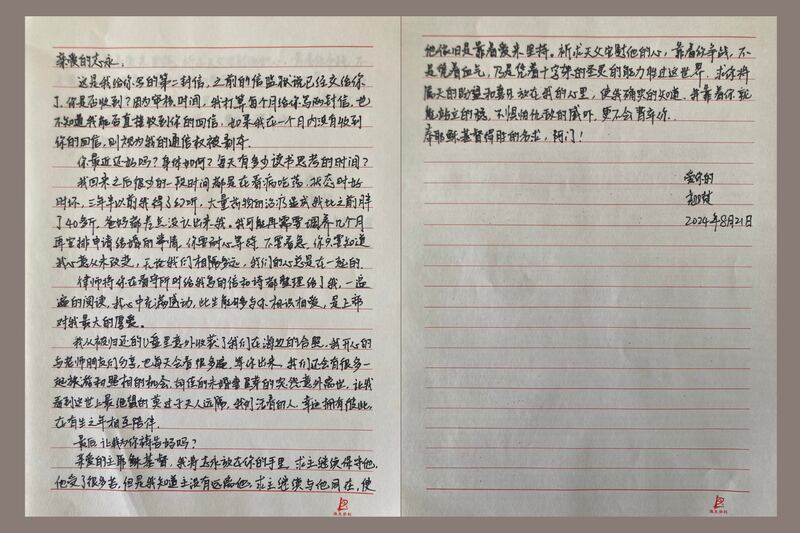 亲爱的志永，
这是我给你写的第二封信，之前的信监狱说已经交给你
了，你是否收到？因为审核时间，我打算每个月给你写两封信，也
不知道我能否直接收到你的回信，如果我在一个月内没有收到
你的回信，则视为我的通信权被剥夺。
你最近还好吗？身体如何？每天有多少读书思考的时间？
我回来之后很多的一段时间都是在看病吃药，状态时好
时坏，三年半以前我得了幻听，大量药物的治疗造成我比之前胖
了40多斤，爸妈都差点没认出来我。我可能再需要调养几个月
再安排申请结婚的事情，你要耐心等待，不要着急，你只要知道
我心意从未改变，无论我们相隔多远，我们的心总是在一起的。
律师将你在看守所时给我写的信和诗都整理给了我，一遍
遍的阅读，我心中充满感动，此生能够与你相识相爱，是上帝
对我最大的厚爱。
我从被归还的U盘里意外收获了我们在海边的合照，我开心的
与老师朋友们分享，也每天会看很多遍，等你出来，我们还会有很多一
起旅游和照相的机会。向庄的未婚妻
的突然意外离世，让我
看到这世上最绝望的莫过于天人远隔，我们活着的人，幸运拥有彼此，
在有生之年相互陪伴。
最后，让我为你祷告好吗？
亲爱的主耶稣基督，我将志永放在你的手里，求主继续保守他，
他受了很多苦，但是我知道主没有远离他，求主继续与他同在，使
他依旧是靠着爱来坚持。祈求天父安慰他的心，靠着你争战，不
是凭着血气，乃是凭着十字架的圣灵的能力胜过这世界。求你将
属天的盼望和喜乐放在我的心里，使我确实的知道，我靠着你就
能站立的稳，不惧怕仇敌的威吓，更不会辜负你。
奉耶稣基督得胜的名求，阿门！
爱你的
翘楚
2024年8月21日